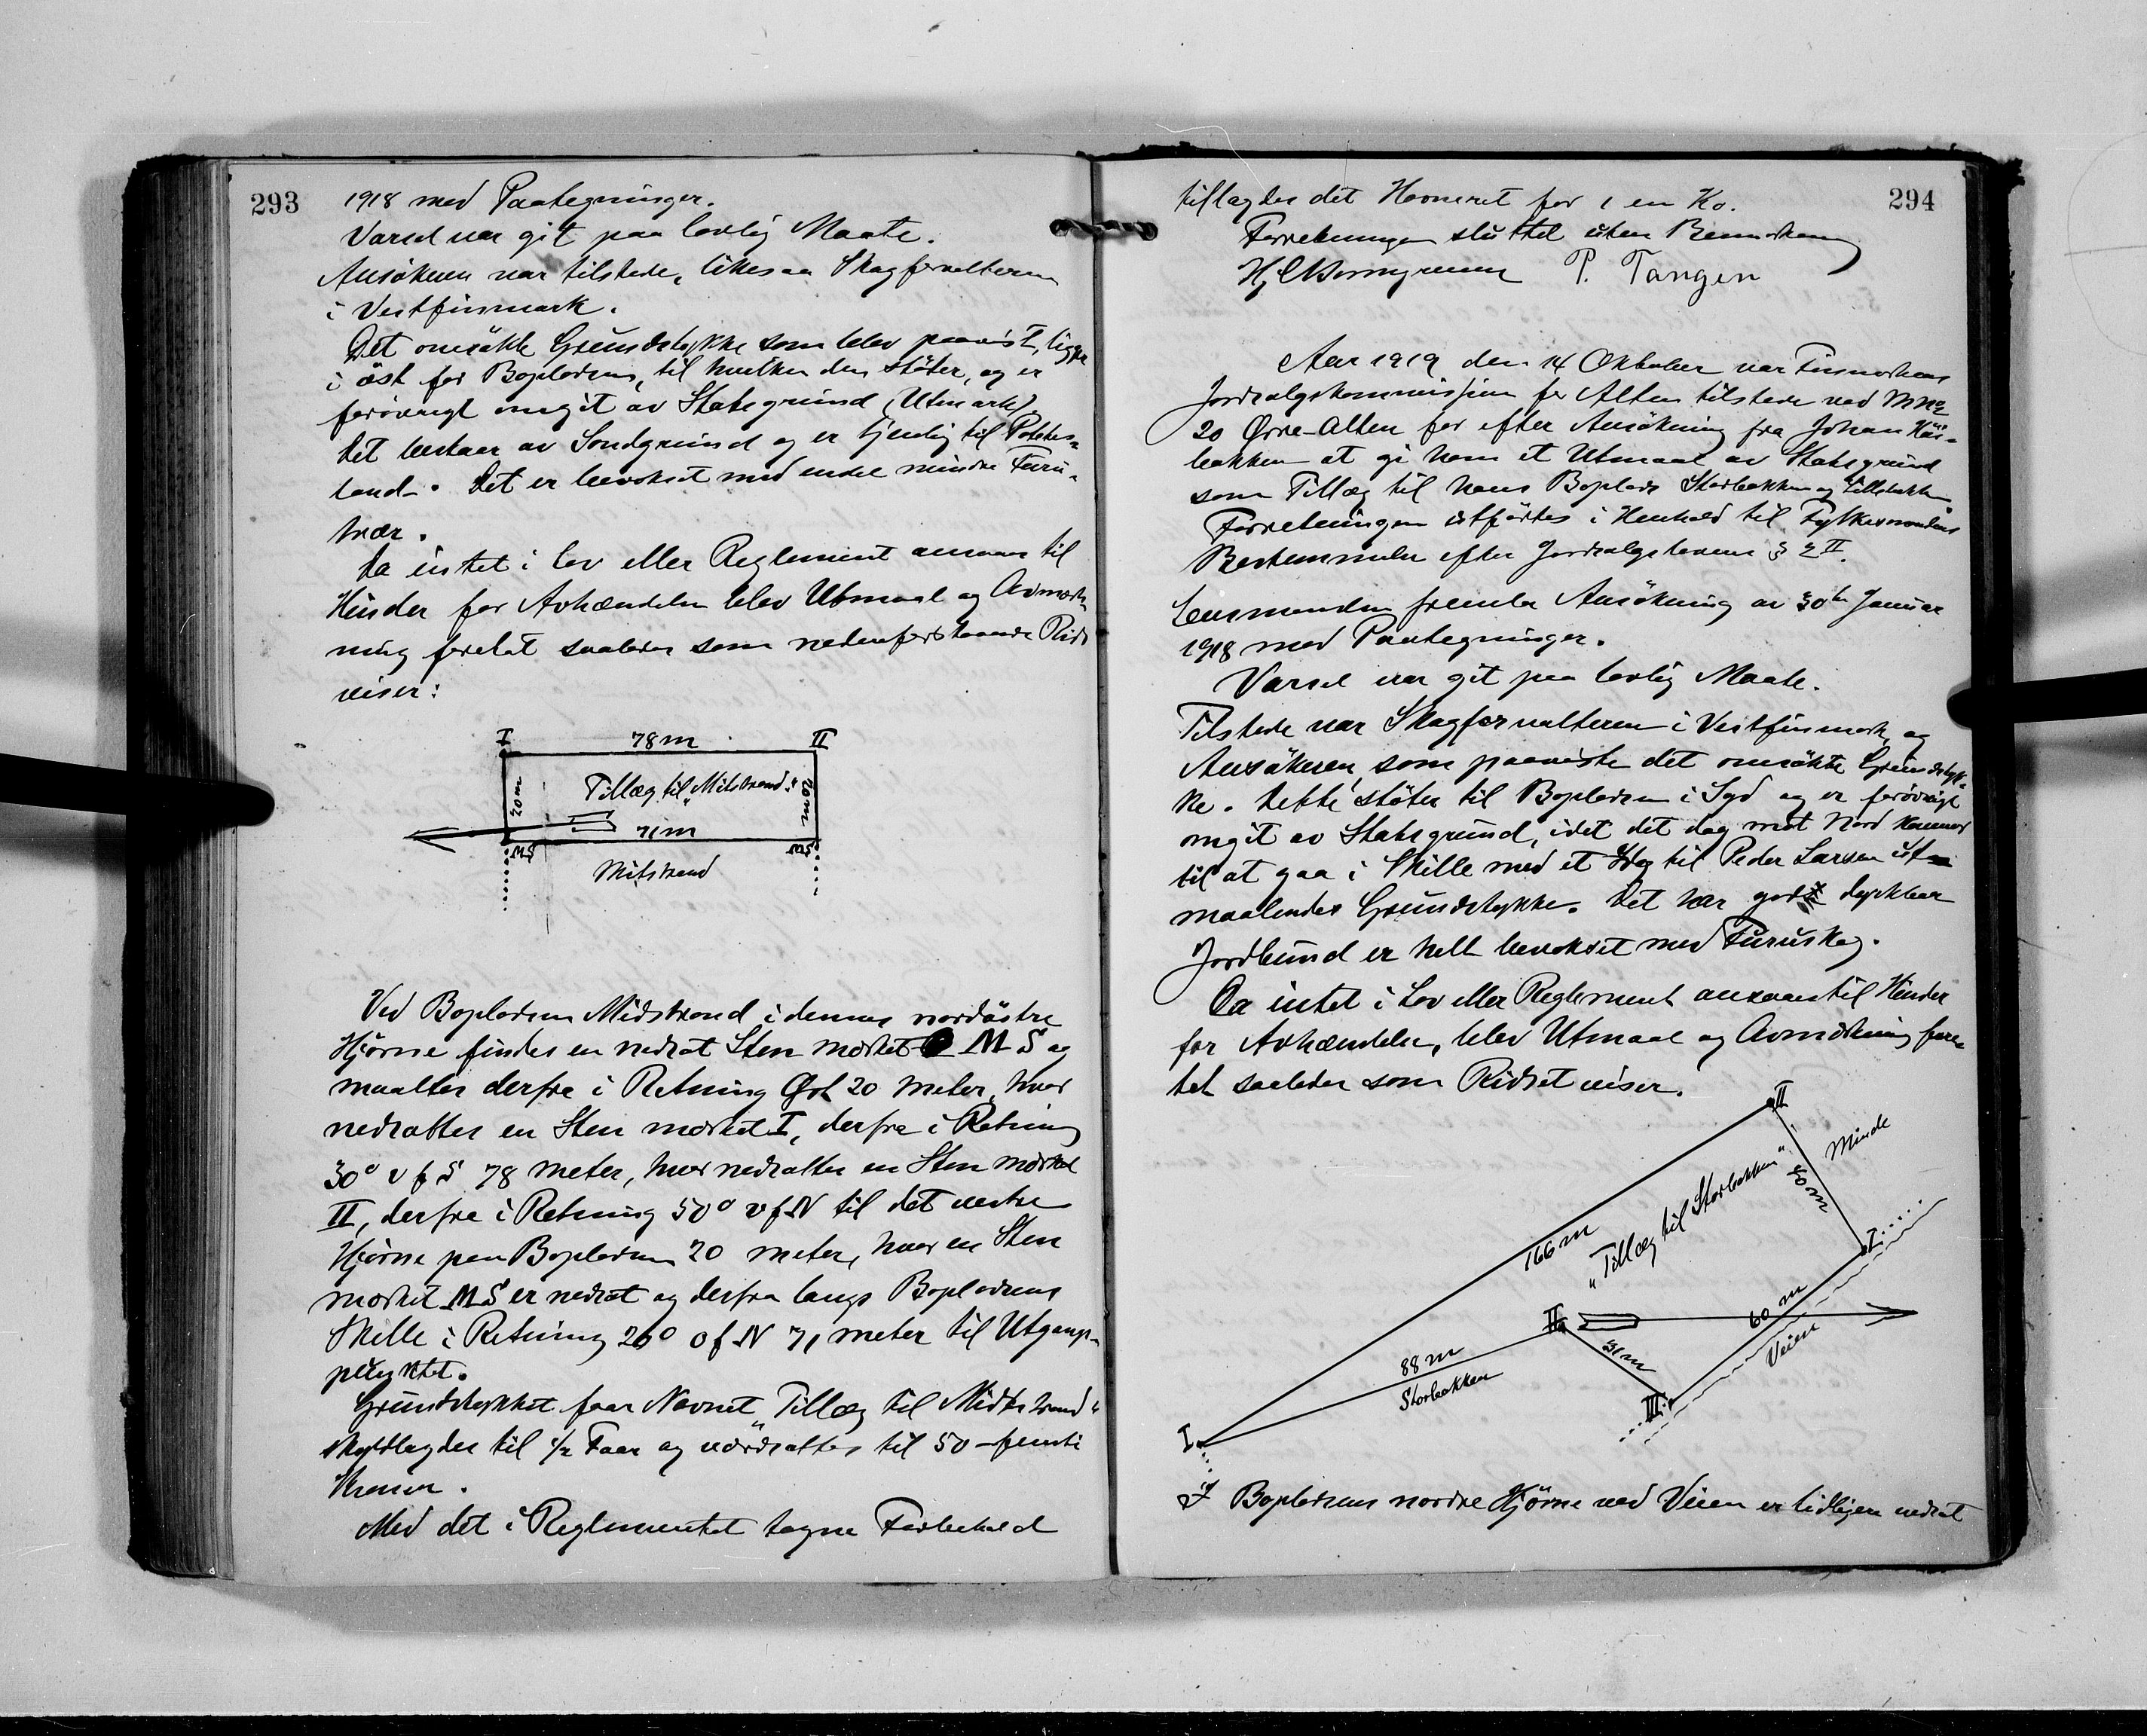 293
1918 med Paategninger.
Varsel var git paa lovlig Maate.
Ansökeren var tilstede, likesaa Skogforvalteren
i Vestfinmark.
Det omsökte Grundstykke som blev paavist, ligger
i öst for Bopladsen, til hvilken den stöter, og er
forövrigt omgit av Statsgrund (Utmark)
Det bestaar av Sandgrund og er tjenlig til Potetes-
land. Det er bevokset med endel mindre Furu-
trær.
Da intet i Lov eller Reglement ansaaes til
Hinder for Avhændelse blev Utmaal og Avmærk-
ning foretat saaledes som nedenforstaaende Rids
viser:
I 78 m II
20 m Tillæg til „Mitstrand“ 20 m
71 m
MS MS
Mitstrand
Ved Bopladsen Midstrand i dennes nordöstre
Hjörne findes en nedsat Sten mærket MS og
maaltes derfra i Retning Öst 20 meter, hvor
nedsattes en Sten mærket I, derfra i Retning
30° v f S 78 meter, hvor nedsattes en Sten mærket
II, derfra i Retning 50° v f N til det vestre
Hjörne paa Bopladsen 20 meter, hvor en Sten
mærket MS er nedsat og derfra langs Bopladsens
Skille i Retning 26° ö f N 71 meter til Utgangs-
punktet.
Grundstykket faar Navnet „Tillæg til Midtstrand“
skyldlagdes til 1/2 Faar og værdsattes til 50 - femti
Kroner.
Med det i Reglementet tagne Forbehold
294
tillagdes det Havneret for 1 en Ko.
Forretningen sluttet uten Bemerkning
P. Tangen
Aar 1919 den 14 Oktober var Finmarkens
Jordsalgskommission for Alten tilstede ved Mno
20 Övre-Alten for efter Ansökning fra Johan
bakken at gi ham et Utmaal av Statsgrund
som Tillæg til hans Boplads Storbakken og Lillebakken
Forretningen utförtes i Henhold til Fylkesmandens
Bestemmelse efter Jordsalgslovens § 2 II.
Lensmanden fremla Ansökning av 30te Januar
1918 med Paategninger.
Varsel var git paa lovlig Maate.
Tilstede var Skogforvalteren i Vestfinmark, og
Ansökeren, som paaviste det omsökte Grundstyk-
ke. Dette stöter til Bopladsen i Syd og er forövrigt
omgit av Statsgrund, idet det dog mot Nord kommer
til at gaa i Skille med et idag til Peder Larsen ut-
maalendes Grundstykke. Det har god dyrkbar
Jordbund er helt bevokset med Furuskog.
Da intet i Lov eller Reglement ansaaes til Hinder
for Avhændelse, blev Utmaal og Avmerkning fore-
tat saaledes som Ridset viser.
II
Minde
80 m
„Tillæg til Storbakken“
166 m
I
II
60 m
Veien
31 m
88 m
Storbakken
III
I
I Bopladsens nordre Hjörne ved Veien er tidligere nedsat